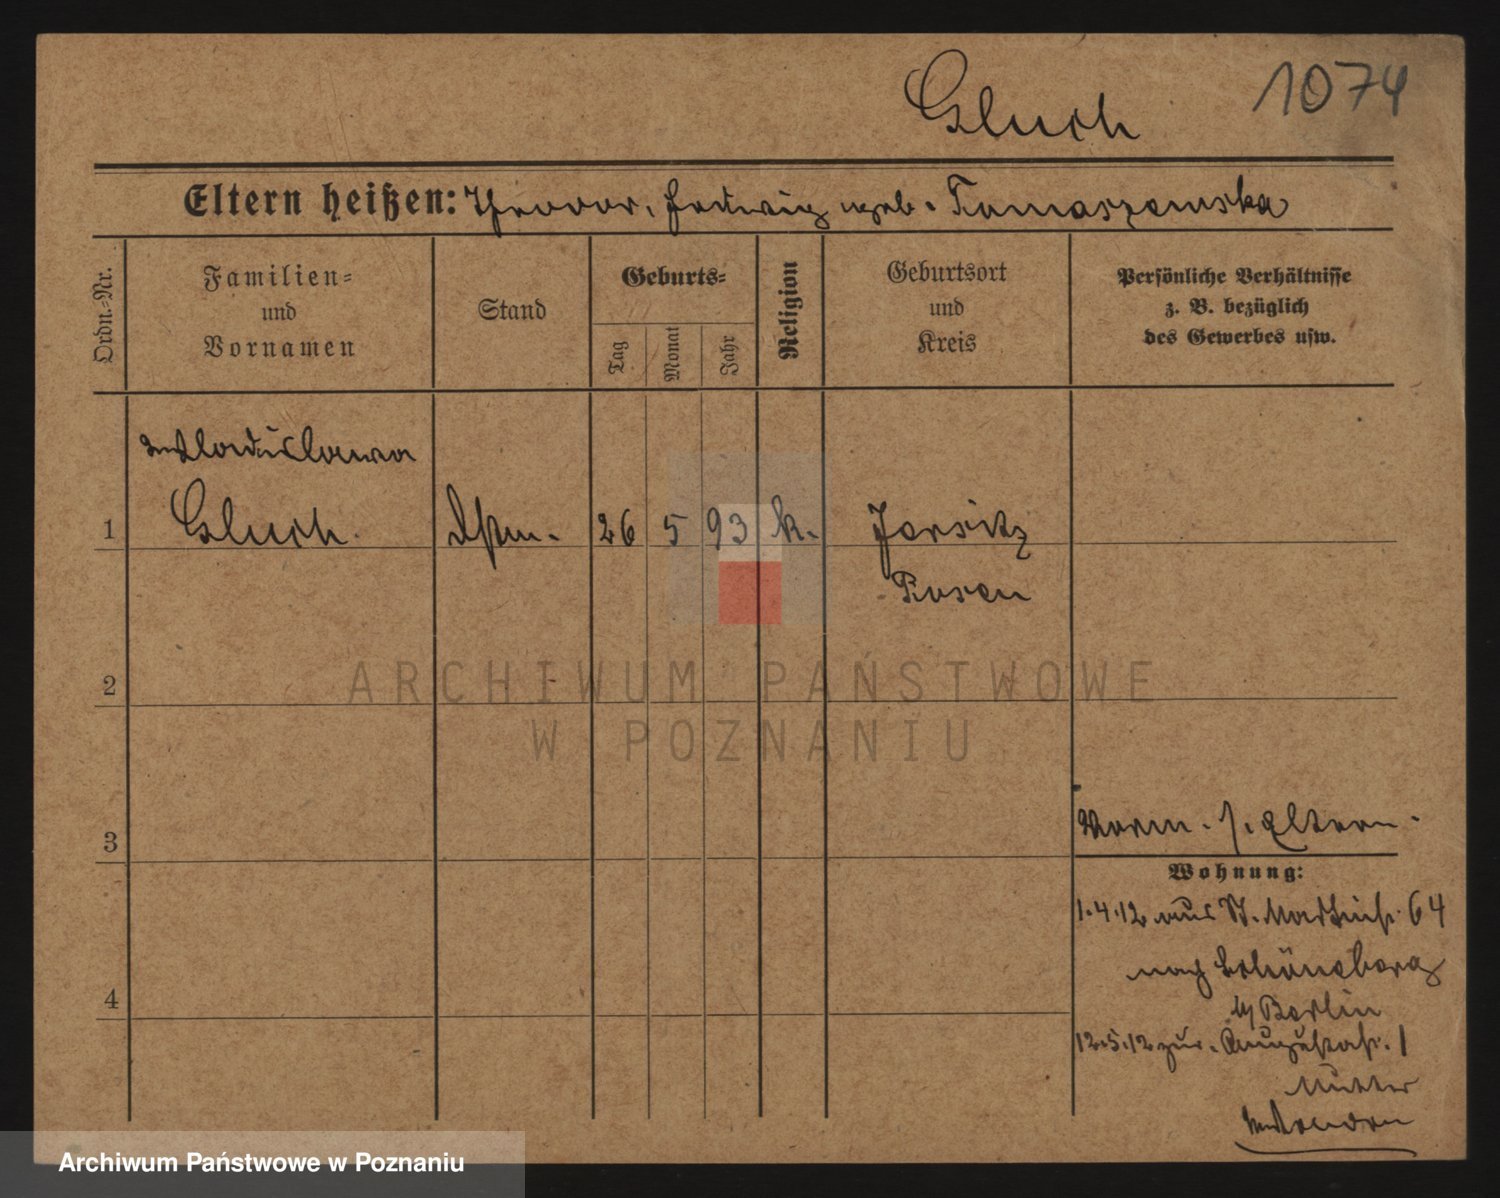 Gluch
1074
Eltern heißen: Theodor, Hedwig geb. Tomaszewska
Ordn.-Nr.
Familien-
und
Vornamen
Stand
Geburts-
Tag
Monat
Jahr
Religion
Geburtsort
und
Kreis
Persönliche Verhältnisse
z. B. bezüglich
des Gewerbes usw.
Wladislawa
1 Gluch. 26 5 93 k. Jersitz
Posen
2
ARCHIWUM PAŃSTWOWE
W POZNANIU
3
Eltern.
Wohnung:
1.4.12 aus St. Martinstr. 64
nach Schöneberg
b/ Berlin
4
12.5.12 zur. Augustastr. 1
Mutter
Archiwum Państwowe w Poznaniu